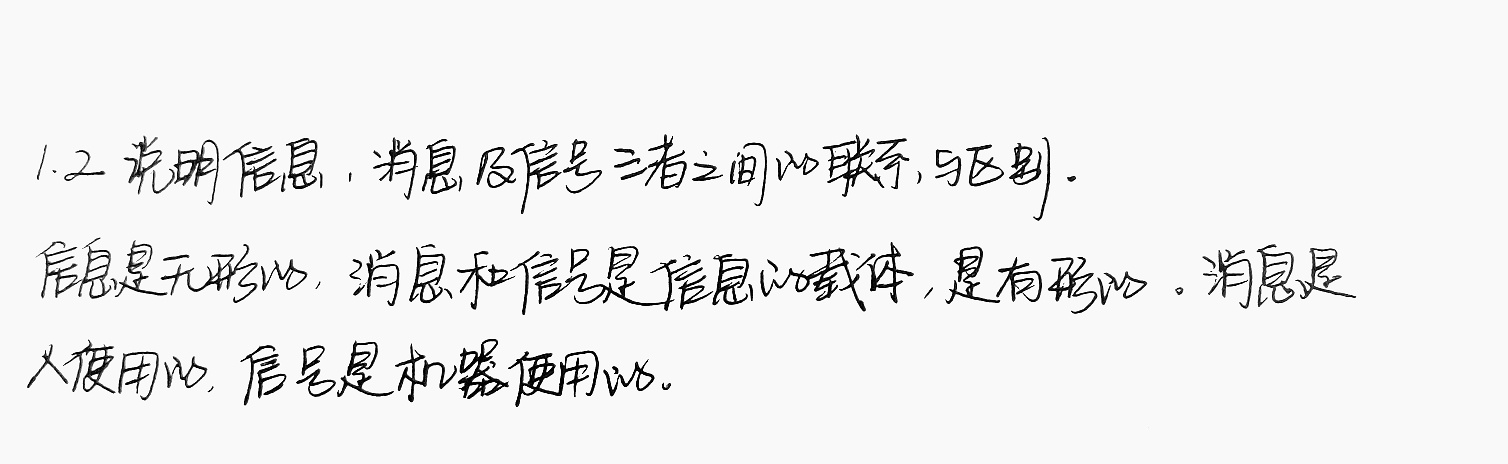 1.2 说明信息，消息及信号三者之间的联系，与区别.
信息是无形的，消息和信号是信息的载体，是有形的。消息是
人使用的，信号是机器使用的.